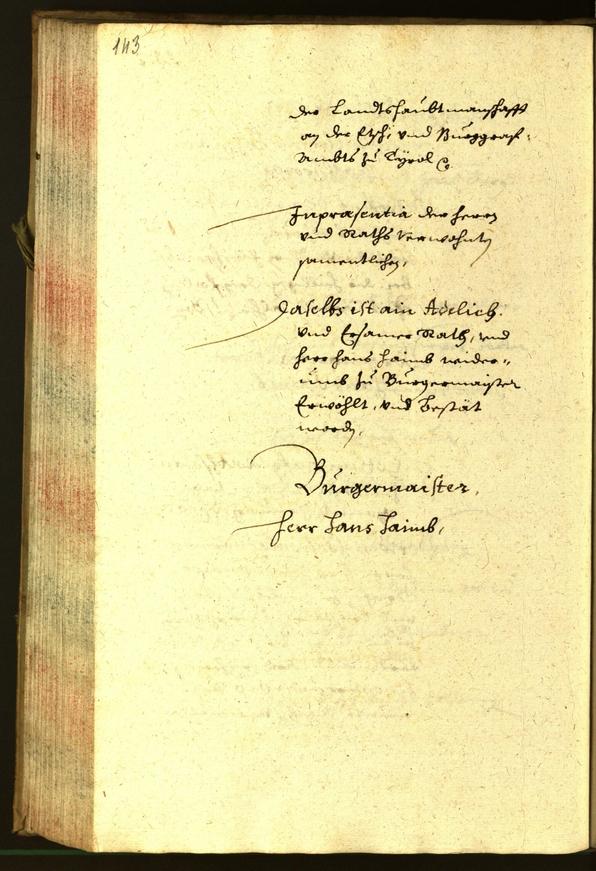 143
der Landtshaubtmanschafft
an der Etsch, und Burggraf-
Ambts zu Tyrol
Inpraesentia der herrn
und Raths Verwohnten
samentlichen,
Daselbs ist ain Adelich.
und Ersamer Rath, und
herr hans haimb wider-
umb zu Burgermaister
Erwöhlt, und bestät
worden,
Burgermaister,
herr hans haimb,